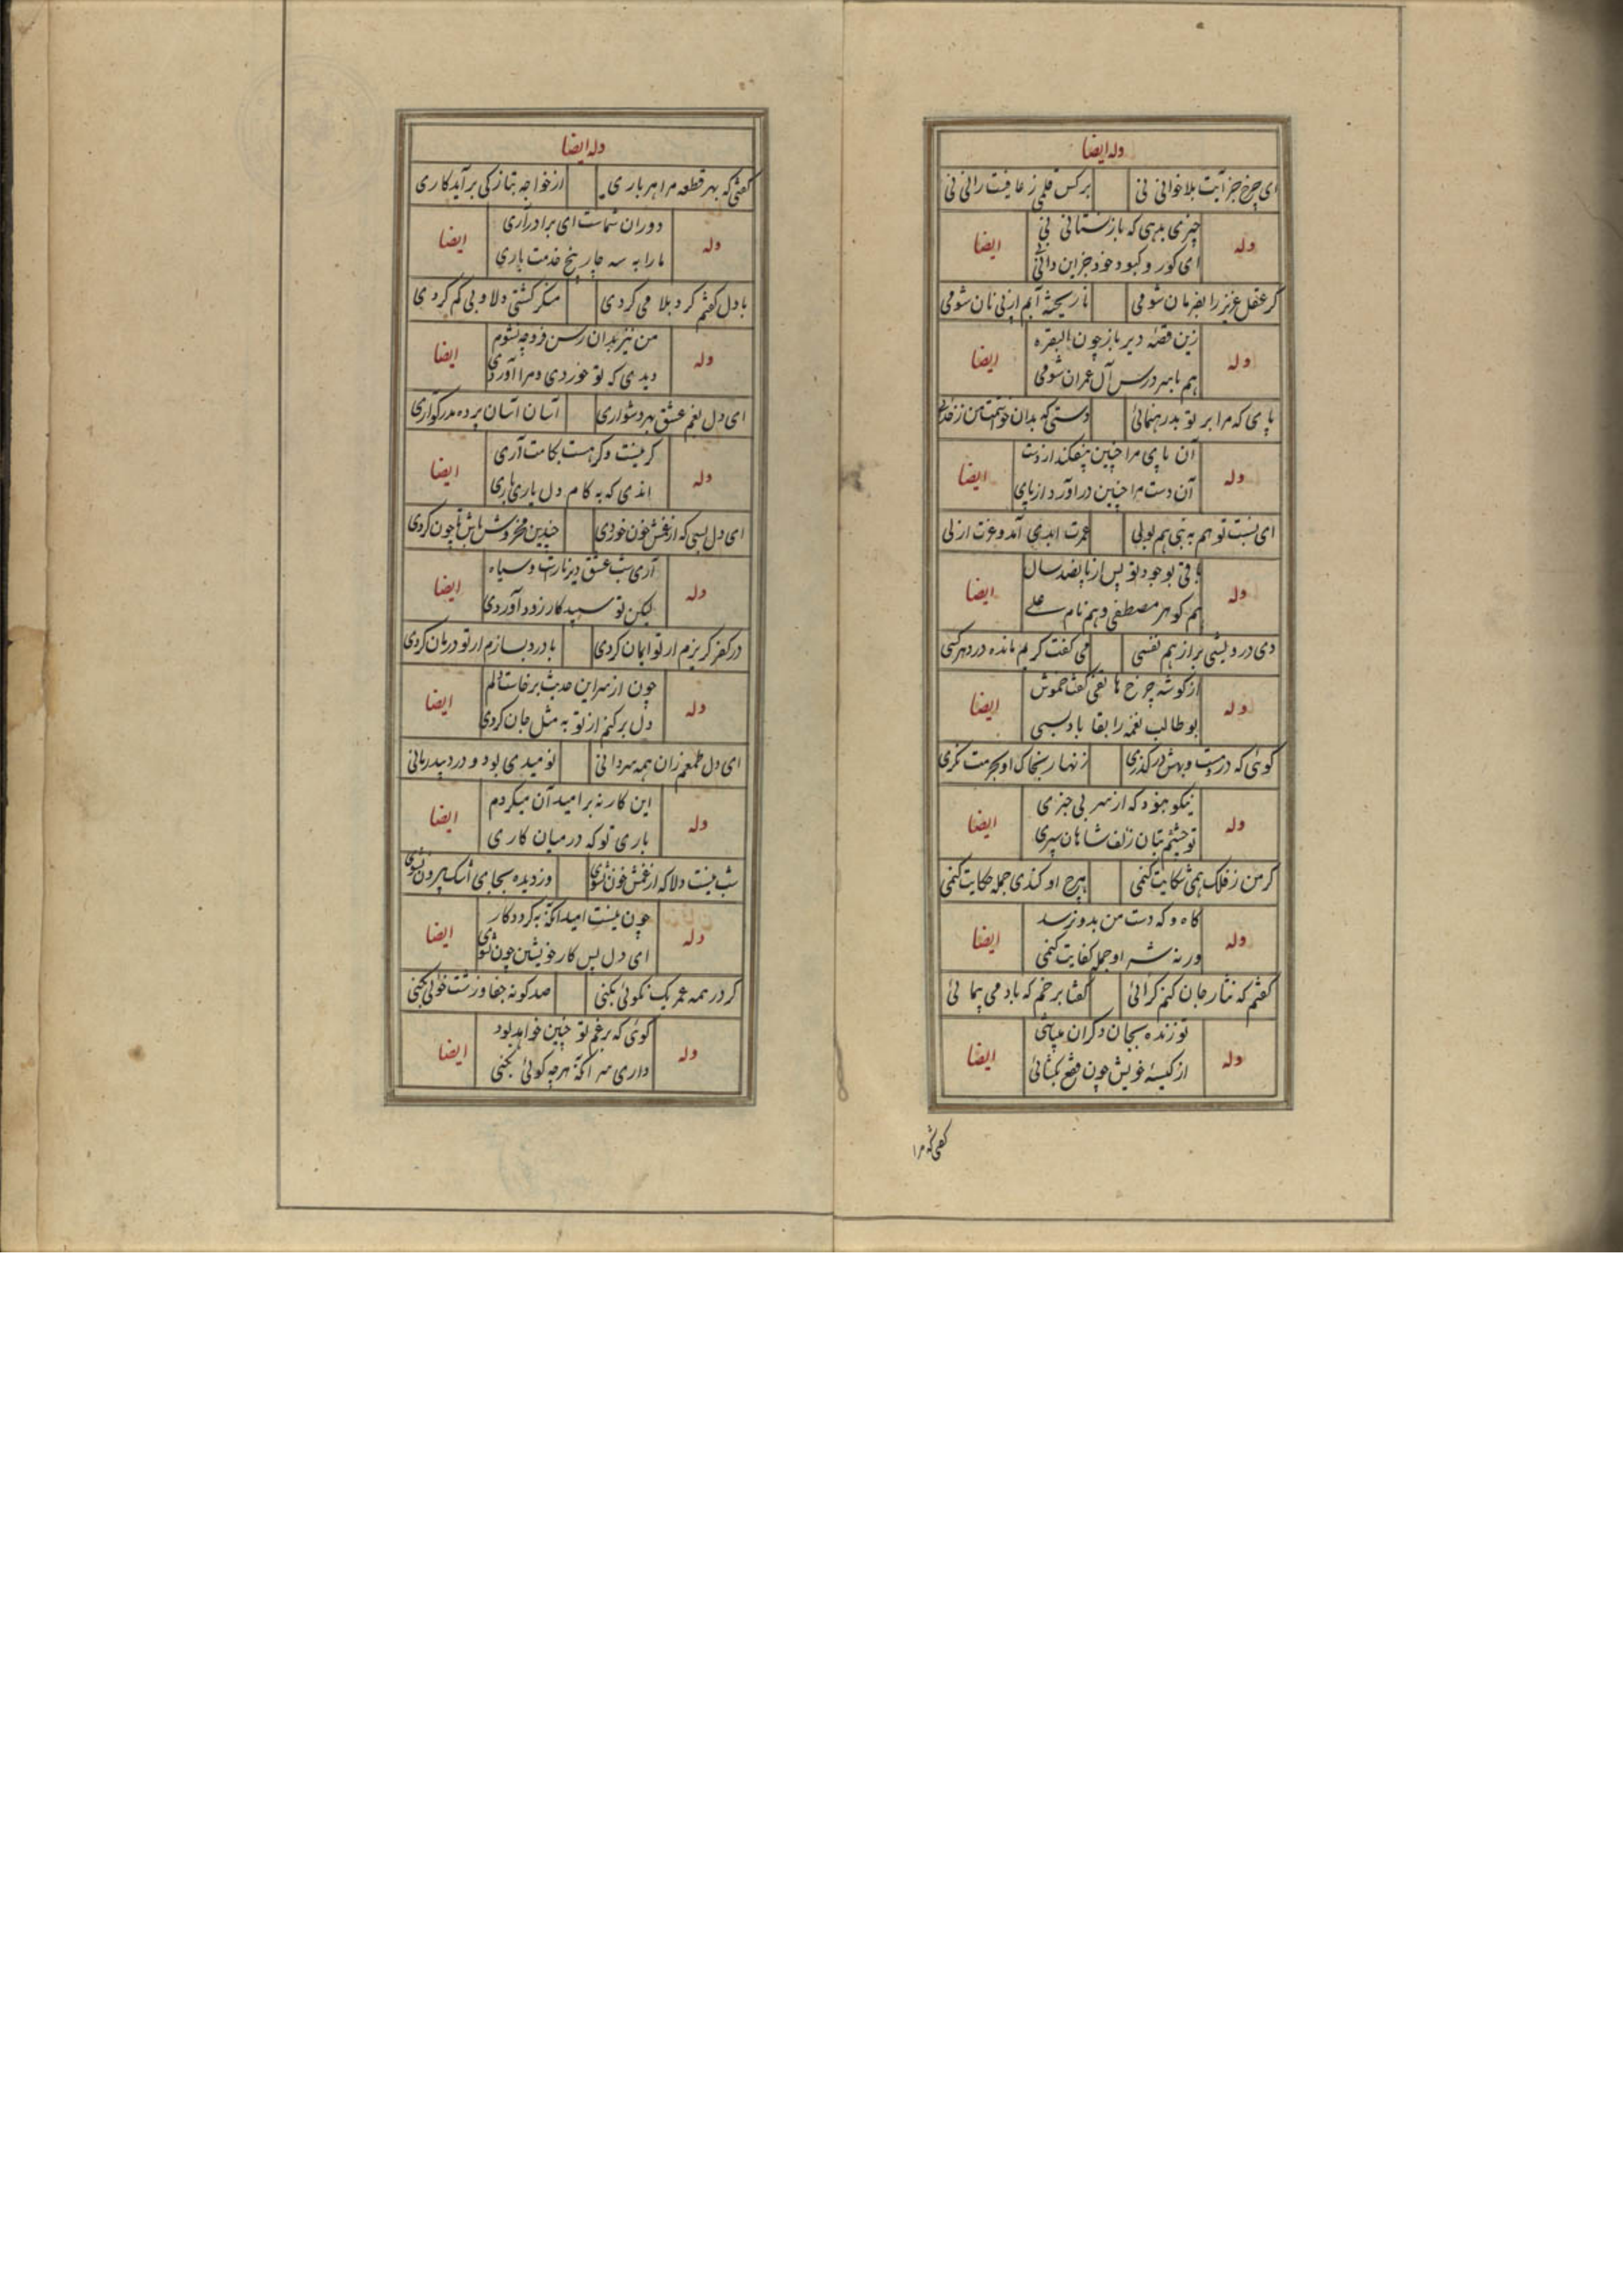 وله ایضا
ای چرخ جز آیت بلا خوانی نی    بر کس قلمی ز عافیت رانی نی
وله    چیزی بدهی که باز نستانی نی    ایضا
ای کور و کبود خود جز این دانی
گر عقل عزیز را بفرمان شومی    نا ریخته آبم از پی نان شومی
وله    زین قصه دیر باز چون البقره    ایضا
هم با سر درس آل عمران شومی
پای که مرا بر تو بد رهنمائی    دستی که بدان خواستمت من ز خدای
وله    آن پای مرا چنین بیفکند از دست    ایضا
آن دست مرا چنین در آورد از پای
ای نسبت تو هم به نبی هم بولی    عمرت ابدی آمد و عزت ازلی
وله    باقی بوجود تو پس از پانصد سال    ایضا
هم گوهر مصطفی و هم نام علی
دی درویشی براز هم نفسی    می گفت کریم مانده در دهر کسی
وله    از گوشه چرخ هاتفی گفت خموش    ایضا
بوطالب نغمه را بقا باد بسی
گوئی که در دست و بهش در گذری    زنهار بخاک او بحرمت نگری
وله    نیکو نبود که از سر بی خبری    ایضا
تو چشم بتان زلف شاهان سپری
گر من ز فلک همی شکایت کنمی    بهرج او کندی جمله حکایت کنمی
وله    کاه و که دست من بدو نرسد    ایضا
ورنه شر او جمله کفایت کنمی
گفتم که نثار جان کنم گر آئی    گفتا بر خم که باد می پیمائی
وله    تو زنده بجان دگران میباشی    ایضا
از کیسه خویش چون فقع بگشائی
گفتی که مرا
وله ایضا
گفتی که بهر قطعه مرا هر باری    از خواجه بتازگی برآید کاری
وله    دوران شماست ای برادر آری    ایضا
ما را به سه چار پنج خدمت باری
با دل گفتم گرد بلا می گردی    منگر گشتی دلا و بی کم گردی
وله    من نیز بدان رسن فرو چه بشوم    ایضا
دیدی که تو خوردی و مرا آوردی
ای دل بغم عشق بهر دشواری    آسان آسان پرده مدر گواری
وله    گر نیست وگر هست بکامت آری    ایضا
اندی که به کام دل یاری یاری
ای دل بسی که از غمش خون خوردی    چندین مخروش باش تا چون گردی
وله    آری شب عشق دیرنازست و سیاه    ایضا
لیکن تو سپید کار زود آوردی
در کفر گریزم ار تو ایمان گردی    با درد بسازم ار تو درمان گردی
وله    چون از سر این حدیث برخاست دلم    ایضا
دل برکنم از تو به مثل جان گردی
ای دل طمعم زان همه سردانی    نومیدی بود و درد بیدرمانی
وله    این کار نه بر امید آن میکردم    ایضا
باری تو که در میان کاری
شب نیست دلا که از غمش خون نشوی    وز دیده بجای اشک بیرون نشوی
وله    چون نیست امید آنکه به گردد کار    ایضا
ای دل پس کار خویشتن چون نشوی
گر در همه عمر یک نکوئی بکنی    صد گونه جفا و زشت خوئی بکنی
وله    گوئی که برغم تو چنین خواهد بود    ایضا
داری سر آنکه هرچه گوئی بکنی